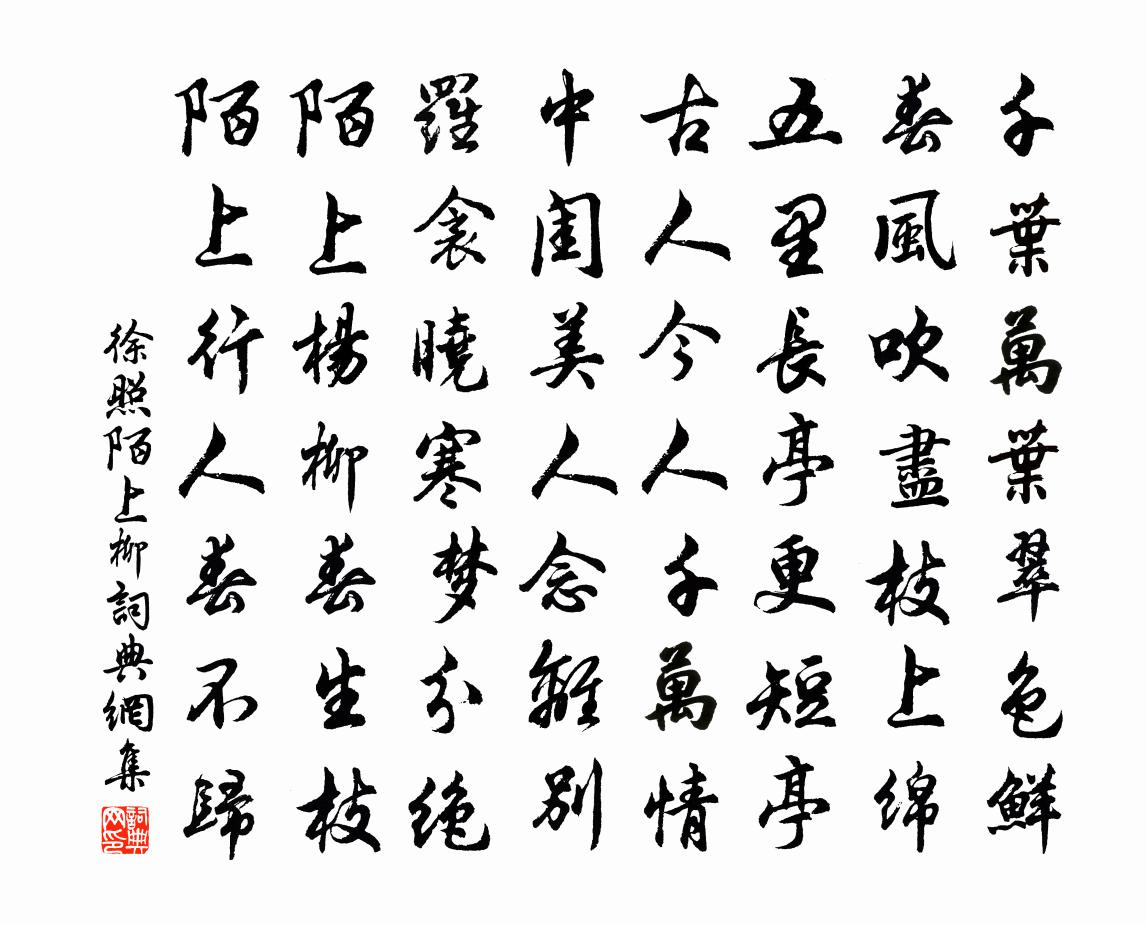 千葉萬葉翠色鮮
春風吹盡枝上綿
五里長亭更短亭
古人今人千萬情
中閨美人念離別
羅衾曉寒梦分絶
陌上楊柳春生枝
陌上行人春不歸
徐照陌上柳詞典網集
詞典网印